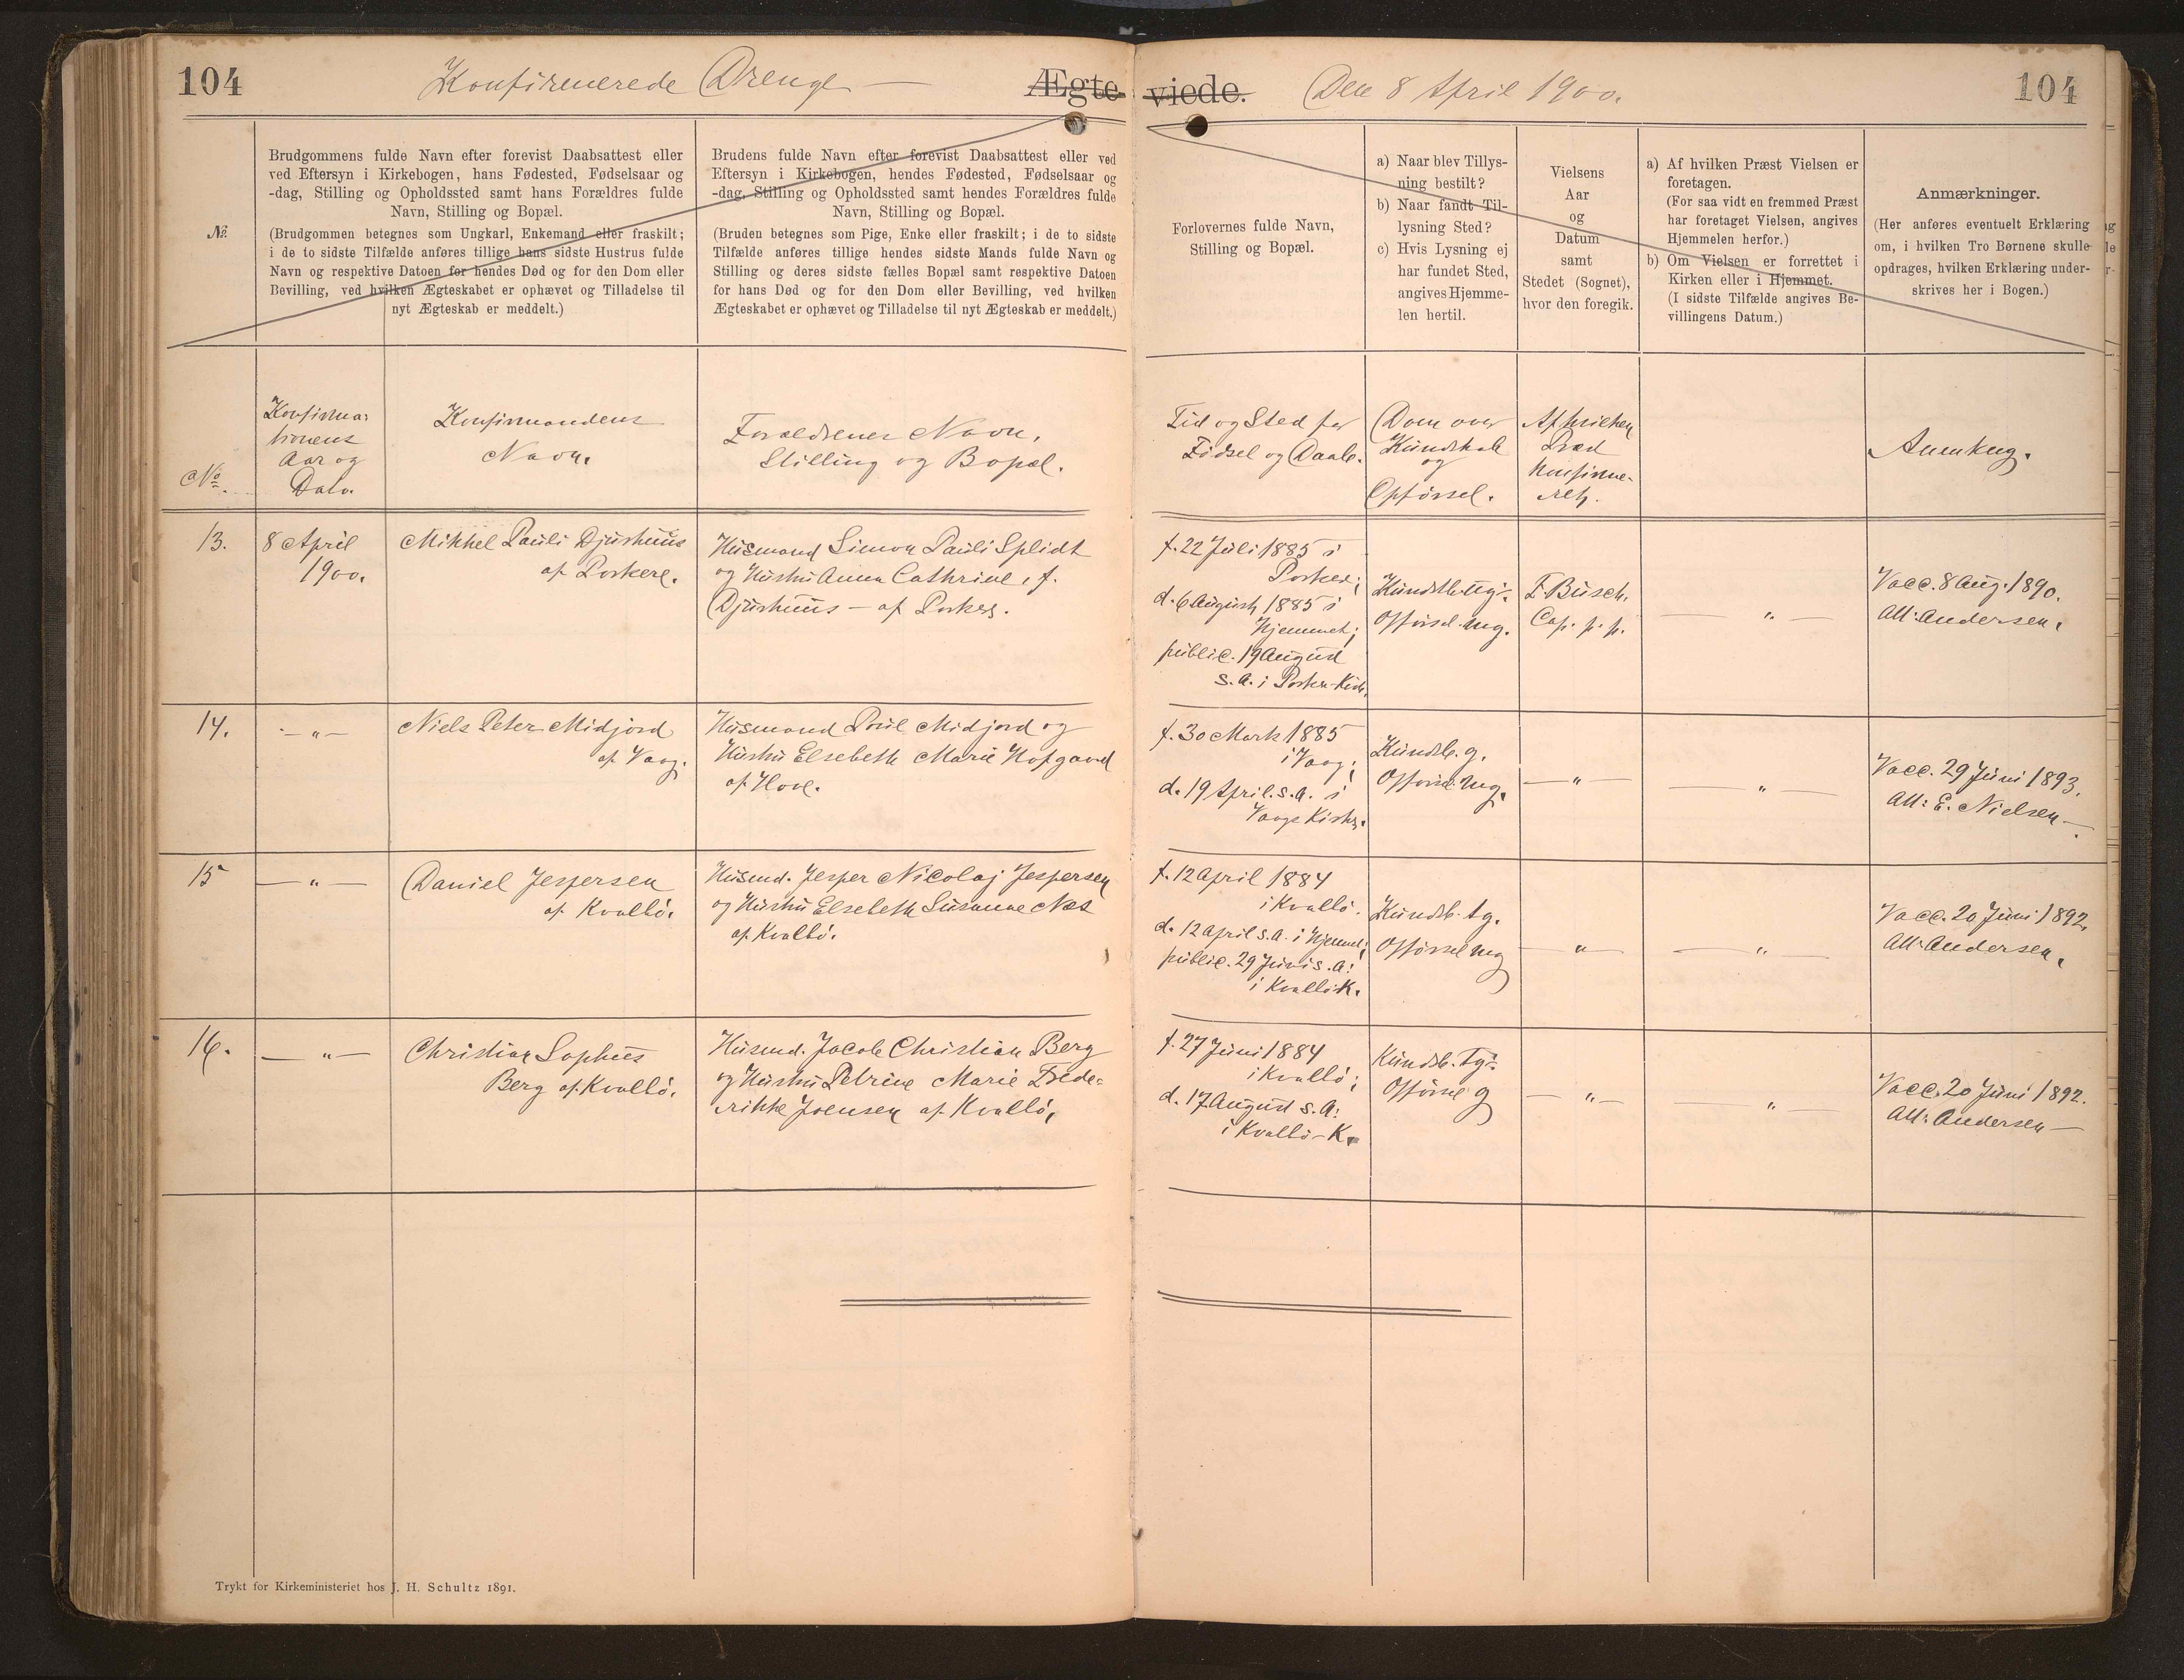 104
Konfirmerede Drenge —
Ægteviede.
Den 8 April 1900.
104
No.
Brudgommens fulde Navn efter forevist Daabsattest eller
ved Eftersyn i Kirkebogen, hans Fødested, Fødselsaar og
-dag, Stilling og Opholdssted samt hans Forældres fulde
Navn, Stilling og Bopæl.
(Brudgommen betegnes som Ungkarl, Enkemand eller fraskilt;
i de to sidste Tilfælde anføres tillige hans sidste Hustrus fulde
Navn og respektive Datoen for hendes Død og for den Dom eller
Bevilling, ved hvilken Ægteskabet er ophævet og Tilladelse til
nyt Ægteskab er meddelt.)
Brudens fulde Navn efter forevist Daabsattest eller ved
Eftersyn i Kirkebogen, hendes Fødested, Fødselsaar og
-dag, Stilling og Opholdssted samt hendes Forældres fulde
Navn, Stilling og Bopæl.
(Bruden betegnes som Pige, Enke eller fraskilt; i de to sidste
Tilfælde anføres tillige hendes sidste Mands fulde Navn og
Stilling og deres sidste fælles Bopæl samt respektive Datoen
for hans Død og for den Dom eller Bevilling, ved hvilken
Ægteskabet er ophævet og Tilladelse til nyt Ægteskab er meddelt.)
Forlovernes fulde Navn,
Stilling og Bopæl.
a) Naar blev Tillys-
ning bestilt?
b) Naar fandt Til-
lysning Sted?
c) Hvis Lysning ej
har fundet Sted,
angives Hjemme-
len hertil.
Vielsens
Aar
og
Datum
samt
Stedet (Sognet),
hvor den foregik.
a) Af hvilken Præst Vielsen er
foretagen.
(For saa vidt en fremmed Præst
har foretaget Vielsen, angives
Hjemmelen herfor.)
b) Om Vielsen er forrettet i
Kirken eller i Hjemmet.
(I sidste Tilfælde angives Be-
villingens Datum.)
Anmærkninger.
(Her anføres eventuelt Erklæring
om, i hvilken Tro Børnene skulle
opdrages, hvilken Erklæring under-
skrives her i Bogen.)
No.
Konfirma-
tionens
Aar og
Dato.
Konfirmandens
Navn.
Forældrenes Navn,
Stilling og Bopæl.
Tid og Sted for
Fødsel og Daab.
Dom over
Kundskab
og
Opførsel.
Af hvilken
Præst
konfirme-
ret.
Anmkng.
13.
8 April
1900.
Mikkel Pauli Djurhuus
af Porkere.
Husmand Simon Pauli Splidt
og Hustru Anna Cathrine, f.
Djurhuus — af Porkere.
f. 22 Juli 1885 i
Porkere;
d. 6 August 1885 i
Hjemmet;
public. 19 August
s. A. i Porkere-Kirk.
Kundsk. tg÷
Opførsel. mg.
F. Busch,
Cap. p. p.
— „ —
Vacc. 8 Aug. 1890.
Att: Andersen.
14.
— „ —
Niels Peter Midjord
af Vaag.
Husmand Poul Midjord og
Hustru Elsebeth Marie Hofgaard
af Hove.
f. 30 Marts 1885
i Vaag;
d. 19 April. s. A. i
Vaags Kirke.
Kundsk. g.
Opførsel. mg.
— „ —
— „ —
Vacc. 29 Juni 1893.
Att: E. Nielsen —
15
— „ —
Daniel Jespersen
af Kvalbö.
Husmd. Jesper Nicolaj Jespersen
og Hustru Elsebeth Susanne Næs
af Kvalbö.
f. 12 April 1884
i Kvalbö.
d. 12 April s. A. i Hjemmet;
public. 29 Juni s. A:
i Kvalbö K.
Kundsk. tg.
Opførsel mg
— „ —
— „ —
Vacc. 20 Juni 1892.
Att: Andersen.
16.
— „ —
Christian Sophus
Berg af Kvalbö.
Husmd. Jacob Christian Berg
og Hustru Petrine Marie Frede-
rikke Joensen af Kvalbö.
f. 27 Juni 1884
i Kvalbö;
d. 17 August s. A:
i Kvalbö-K.
Kundsk. tg÷
Opførsel g
— „ —
— „ —
Vacc. 20 Juni 1892.
Att: Andersen —
Trykt for Kirkeministeriet hos J. H. Schultz 1891.